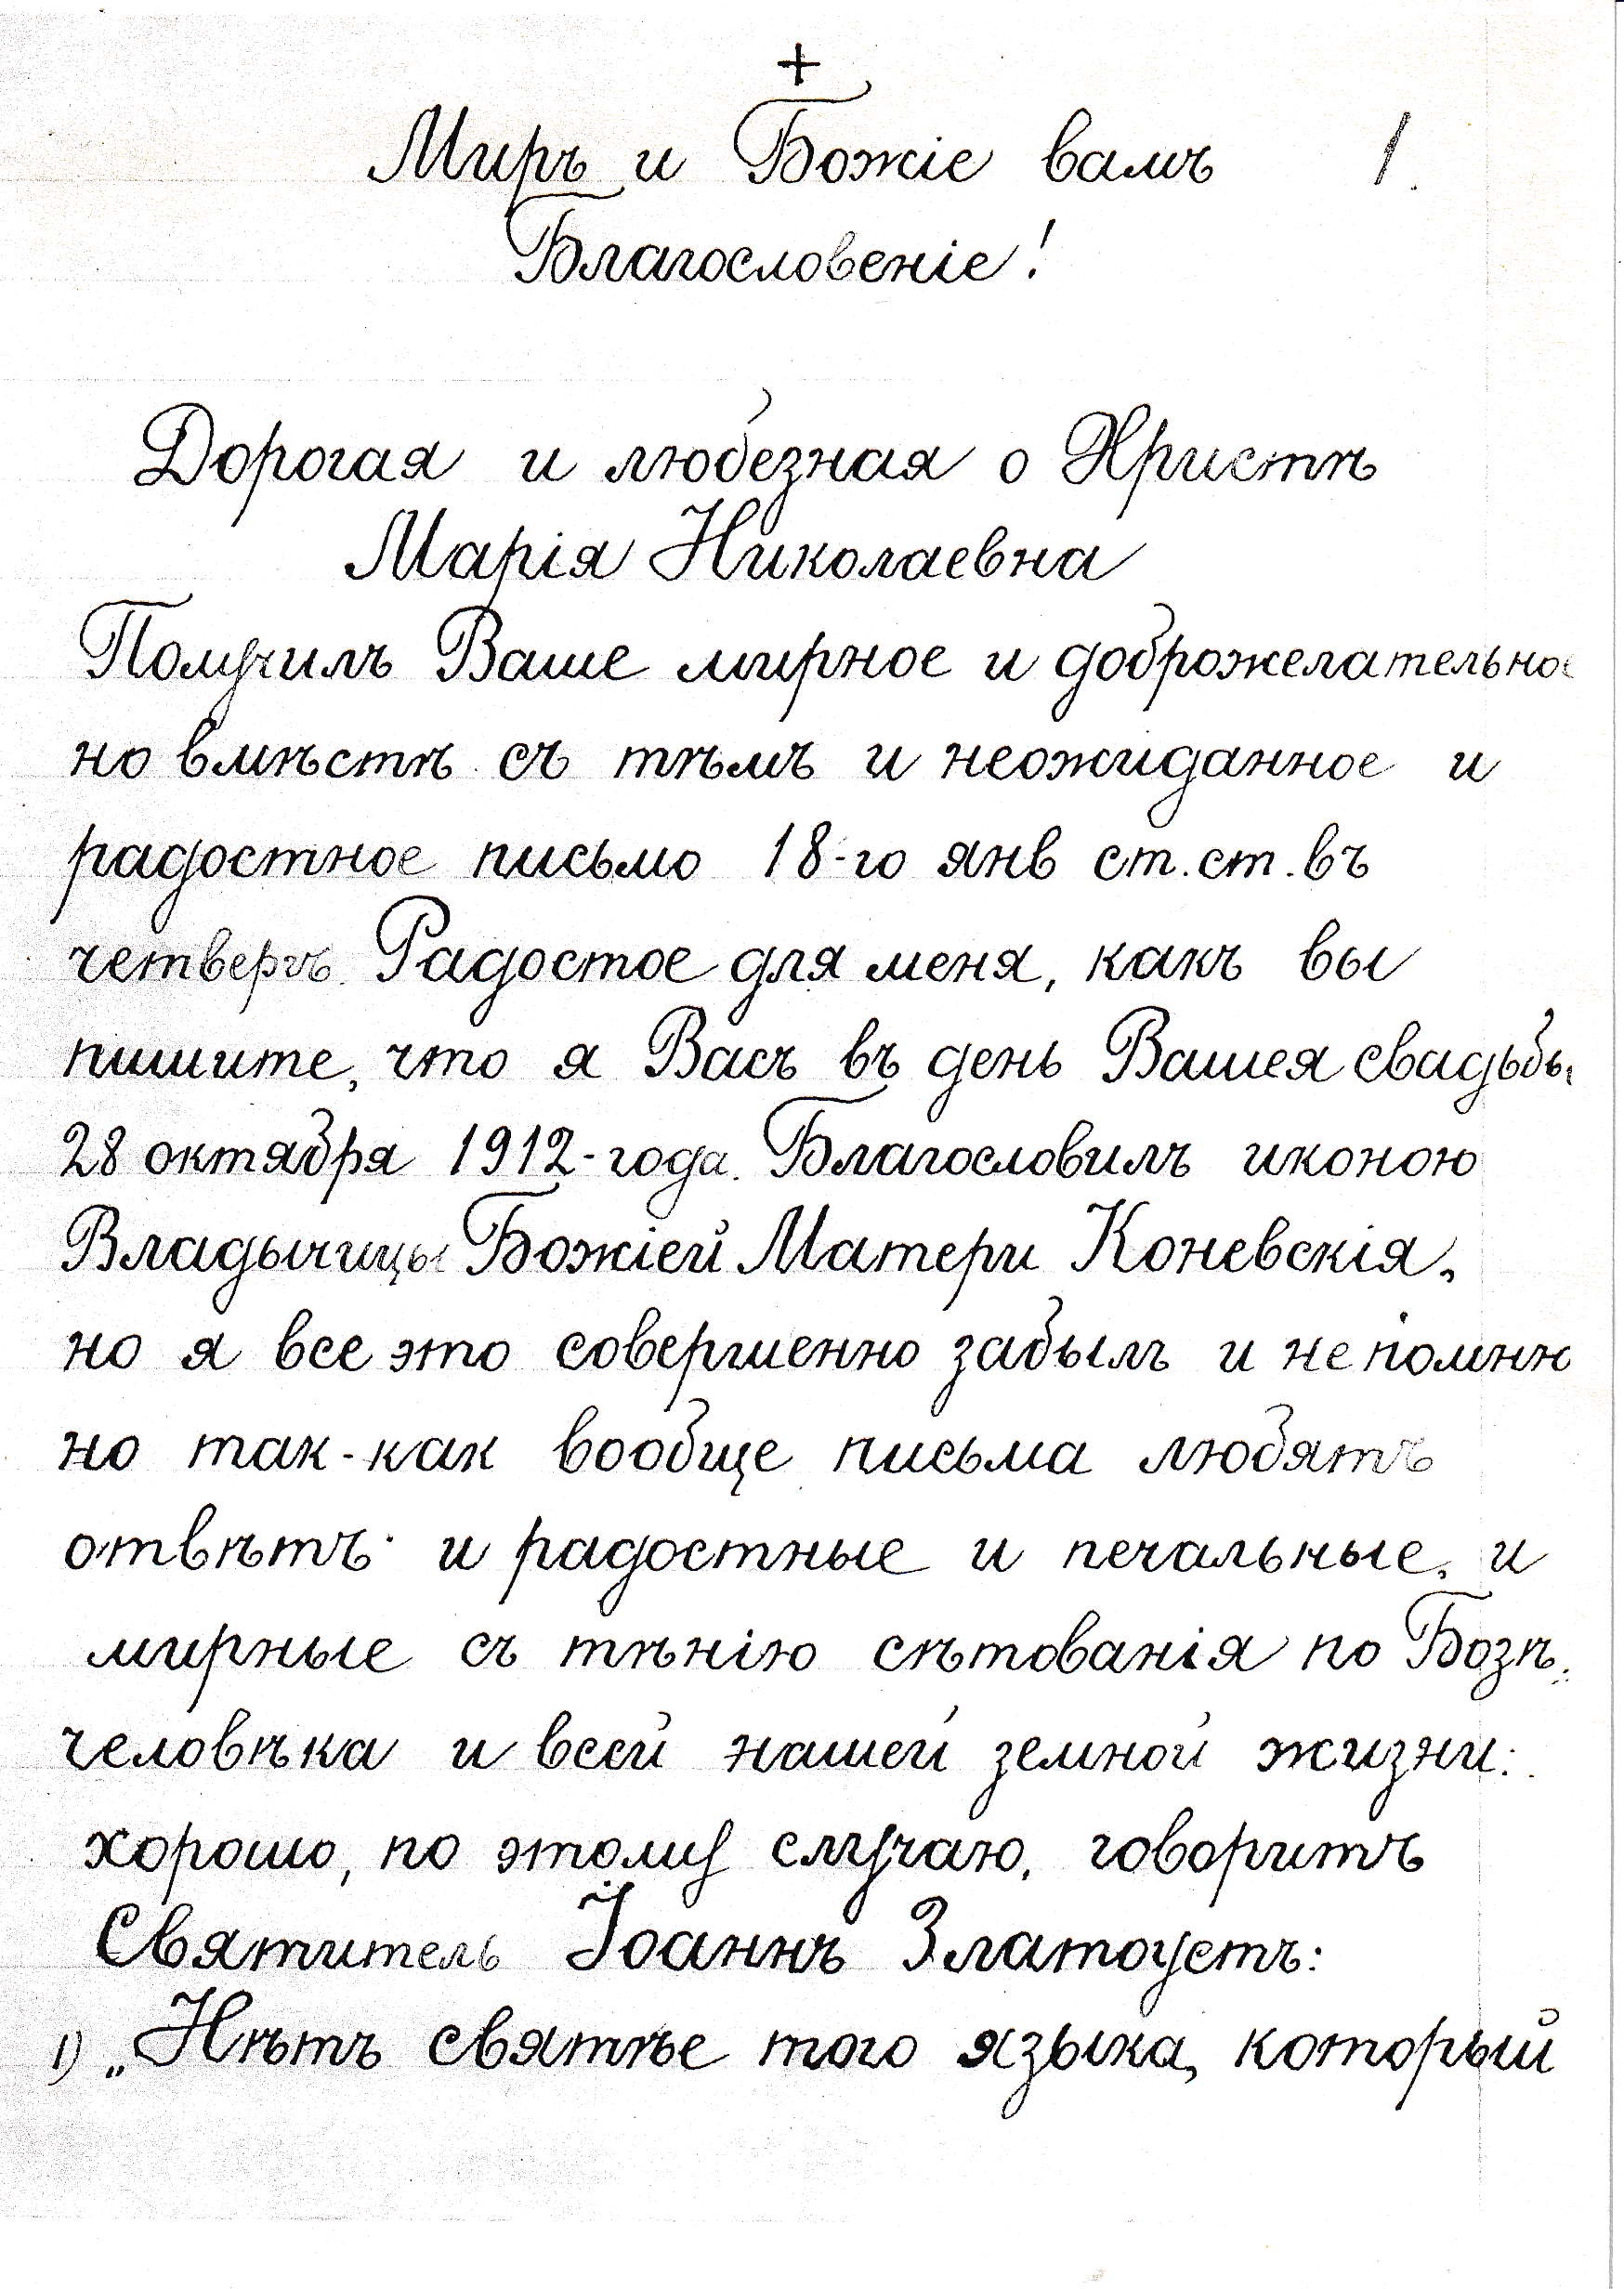 +
Миръ и Божіе вамъ 1.
Благословеніе!
Дорогая и любезная о Христѣ
Марія Николаевна
Получилъ Ваше мирное и доброжелательное
но вмѣстѣ съ тѣмъ и неожиданное и
радостное письмо 18-го янв ст.ст. въ
четвергъ. Радостое для меня, какъ вы
пишите, что я Васъ въ день Вашея свадьбы
28 октября 1912-года. Благословилъ иконою
Владычицы Божіей Матери Коневскія,
но я все это совершенно забылъ и не помню
но так-как вообще письма любятъ
отвѣтъ и радостные и печальные, и
мирные съ тѣнію сѣтованія по Бозѣ.
человѣка и всей нашей земной жизни:
хорошо, по этому случаю, говоритъ
Святитель Іоаннъ Златоустъ:
1) „Нѣтъ святѣе того языка, который